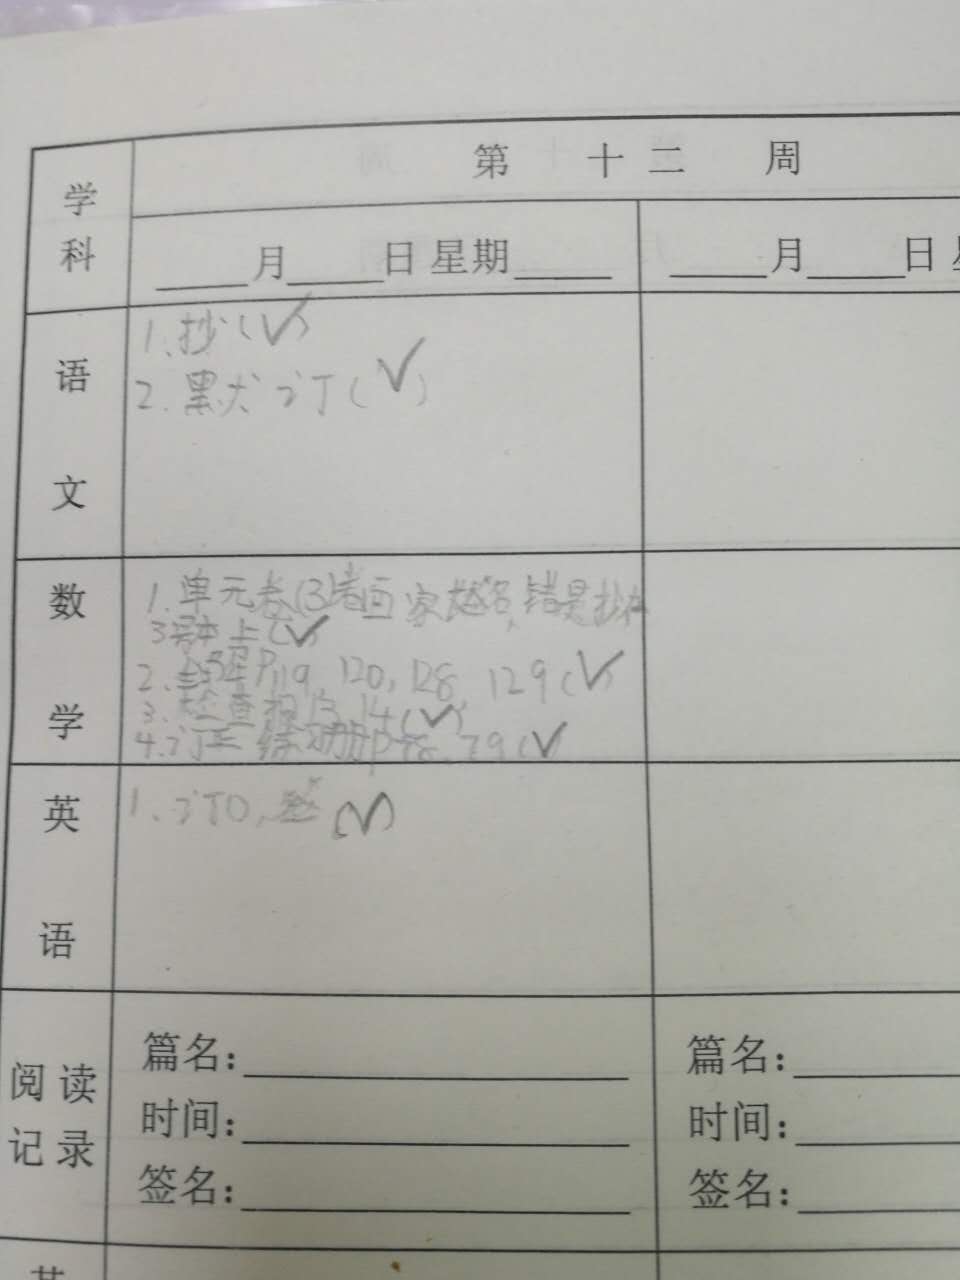 第 十二 周
学科
____月____日 星期____
____月____日
语文
1、抄(✓)
2. 默 订(✓)
数学
1. 单元卷(3 家 错是抄在
3号本上(✓)
2. P119, 120, 128, 129(✓)
3. 检查 13, 14(✓)
4. 订正 练习册P78、79(✓)
英语
1、订 签(✓)
阅读记录
篇名:
时间:
签名:
篇名:
时间:
签名: